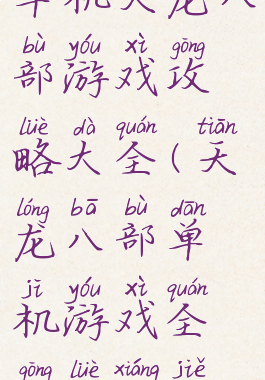 单机天龙八
bù yóu xì gōng
部游戏攻
lüè dà quán tiān
略大全(天
lóng bā bù dān
龙八部单
jī yóu xì quán
机游戏全
gōng lüè xiáng jiě